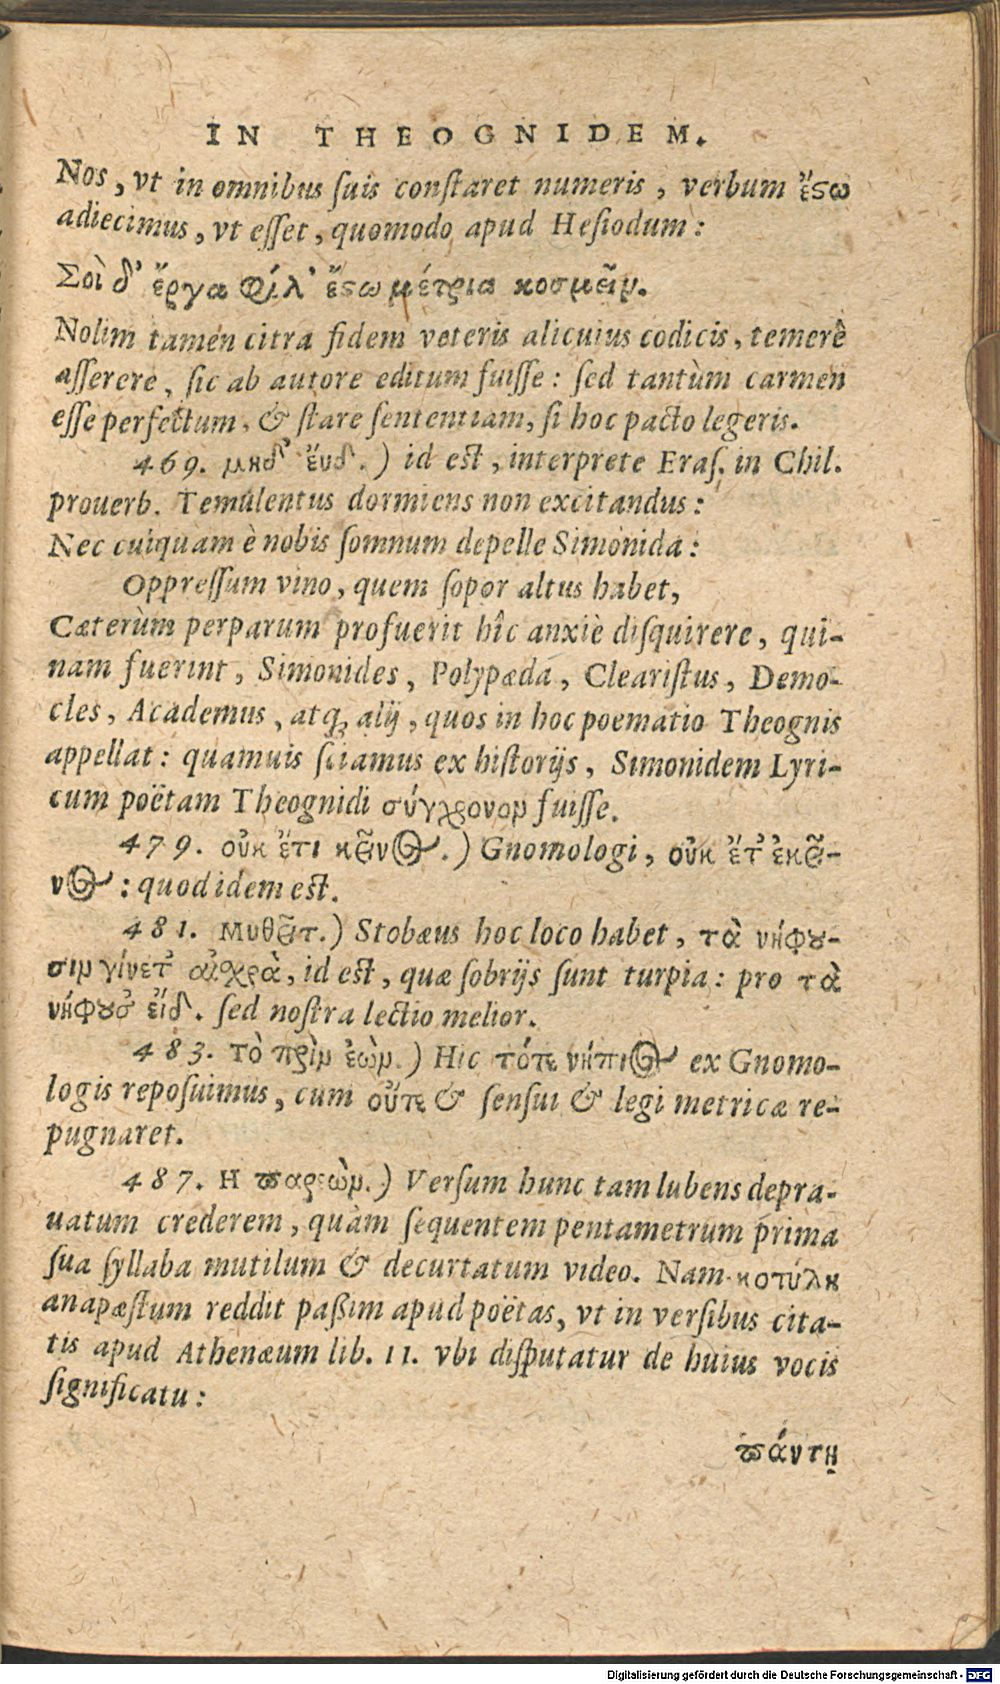 IN THEOGNIDEM.
Nos, vt in omnibus suis constaret numeris, verbum ἔςω
adiecimus, vt esset, quomodo apud Hesiodum:
Σοὶ δ' ἔργα φίλ' ἔςω μέτρια κοσμεῖν.
Nolim tamen citra fidem veteris alicuius codicis, temerè
asserere, sic ab autore editum fuisse: sed tantùm carmen
esse perfectum, & stare sententiam, si hoc pacto legeris.
469. μηδ' ἕυδ.) id est, interprete Eras. in Chil.
prouerb. Temulentus dormiens non excitandus:
Nec cuiquam è nobis somnum depelle Simonida:
Oppressum vino, quem sopor altus habet,
Cæterùm perparum profuerit hîc anxiè disquirere, qui-
nam fuerint, Simonides, Polypæda, Clearistus, Demo-
cles, Academus, atq; alij, quos in hoc poematio Theognis
appellat: quamuis sciamus ex historijs, Simonidem Lyri-
cum poëtam Theognidi σύγχρονον fuisse.
479. οὐκ ἔτι κεῖνος.) Gnomologi, οὐκ ἔτ' ἐκεῖ-
νος: quod idem est.
481. Μυθεῖτ.) Stobæus hoc loco habet, τὰ νήφου-
σιν γίνετ' αἰσχρὰ, id est, quæ sobrijs sunt turpia: pro τὰ
νήφουσ' εἴδ. sed nostra lectio melior.
483. τὸ πρὶν ἐὼν.) Hic τότε νήπιος ex Gnomo-
logis reposuimus, cum οὔτε & sensui & legi metricæ re-
pugnaret.
487. Η παρεὼν.) Versum hunc tam lubens depra-
uatum crederem, quàm sequentem pentametrum prima
sua syllaba mutilum & decurtatum video. Nam κοτύλη
anapæstum reddit paßim apud poëtas, vt in versibus cita-
tis apud Athenæum lib. 11. vbi disputatur de huius vocis
significatu:
πάντῃ
Digitalisierung gefördert durch die Deutsche Forschungsgemeinschaft - DFG